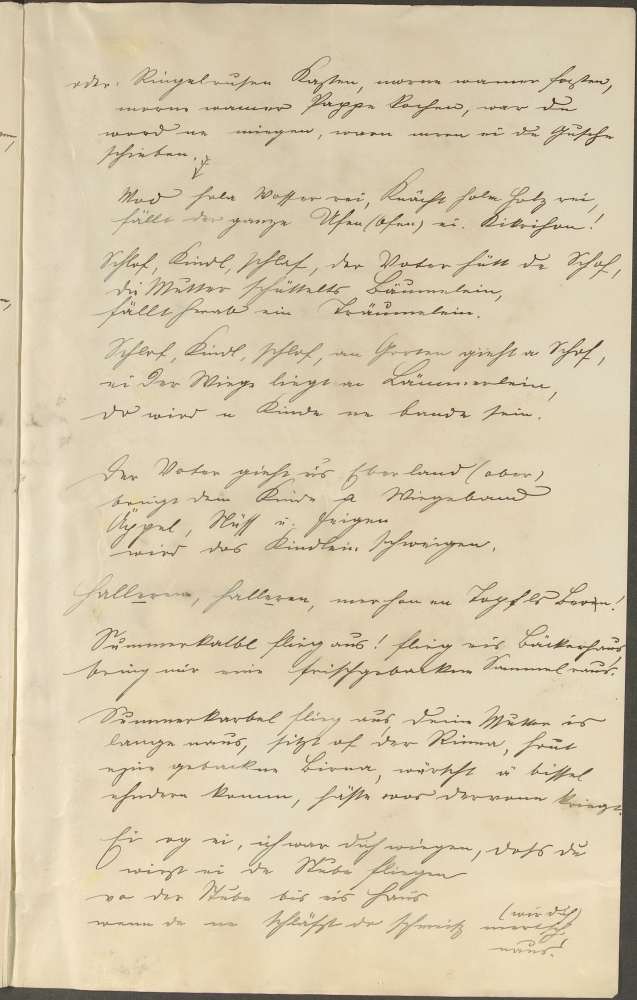 oder: Ringelrusen Kasten, morne wamer fasten,
morne wamer Pappe kochen, war du
word ne miegen, warn mern ei de Gusche
schieben.
Mad hola Wosser rei, Knächt holm Holz rei,
fällt der ganze Ufen (Ofen) ei. Kikrihon!
Schlof, Kindl, schlaf, der Voter hütt de Schof,
die Mutter schüttelts Bäumelein,
fällt herab ein Träumelein.
Schlof, Kindl, schlof, an Gorten gieht a Schof,
ei der Wiege liegt a Lämmerlein,
do wird n Kinde ne bande sein.
Der Voter gieht eis Eberland (ober)
bringt dem Kinde a Wiegeband
Äppel, Nüss u. Feigen
wird das Kindlein schweigen.
Halleren, halleren, merhon en Topfls Beern!
Summerkalbl flieg aus! flieg eis Bäckerhaus
bring mir eine frischgebackne Sammel raus.
Summerkarbel flieg aus deine Mutter is
lange naus, sitzt of der Rinna, hout
eine gebackne Birna, wärscht a bissel
ehndern komm, hätts wos dervone kriegt.
Ei og ei, ich war dich wiegen, doss du
wirst ei de Stube fliegen
vo der Stube bis eis Haus
wenn de ne schläfst do schmeiss (wir dich)
naus!